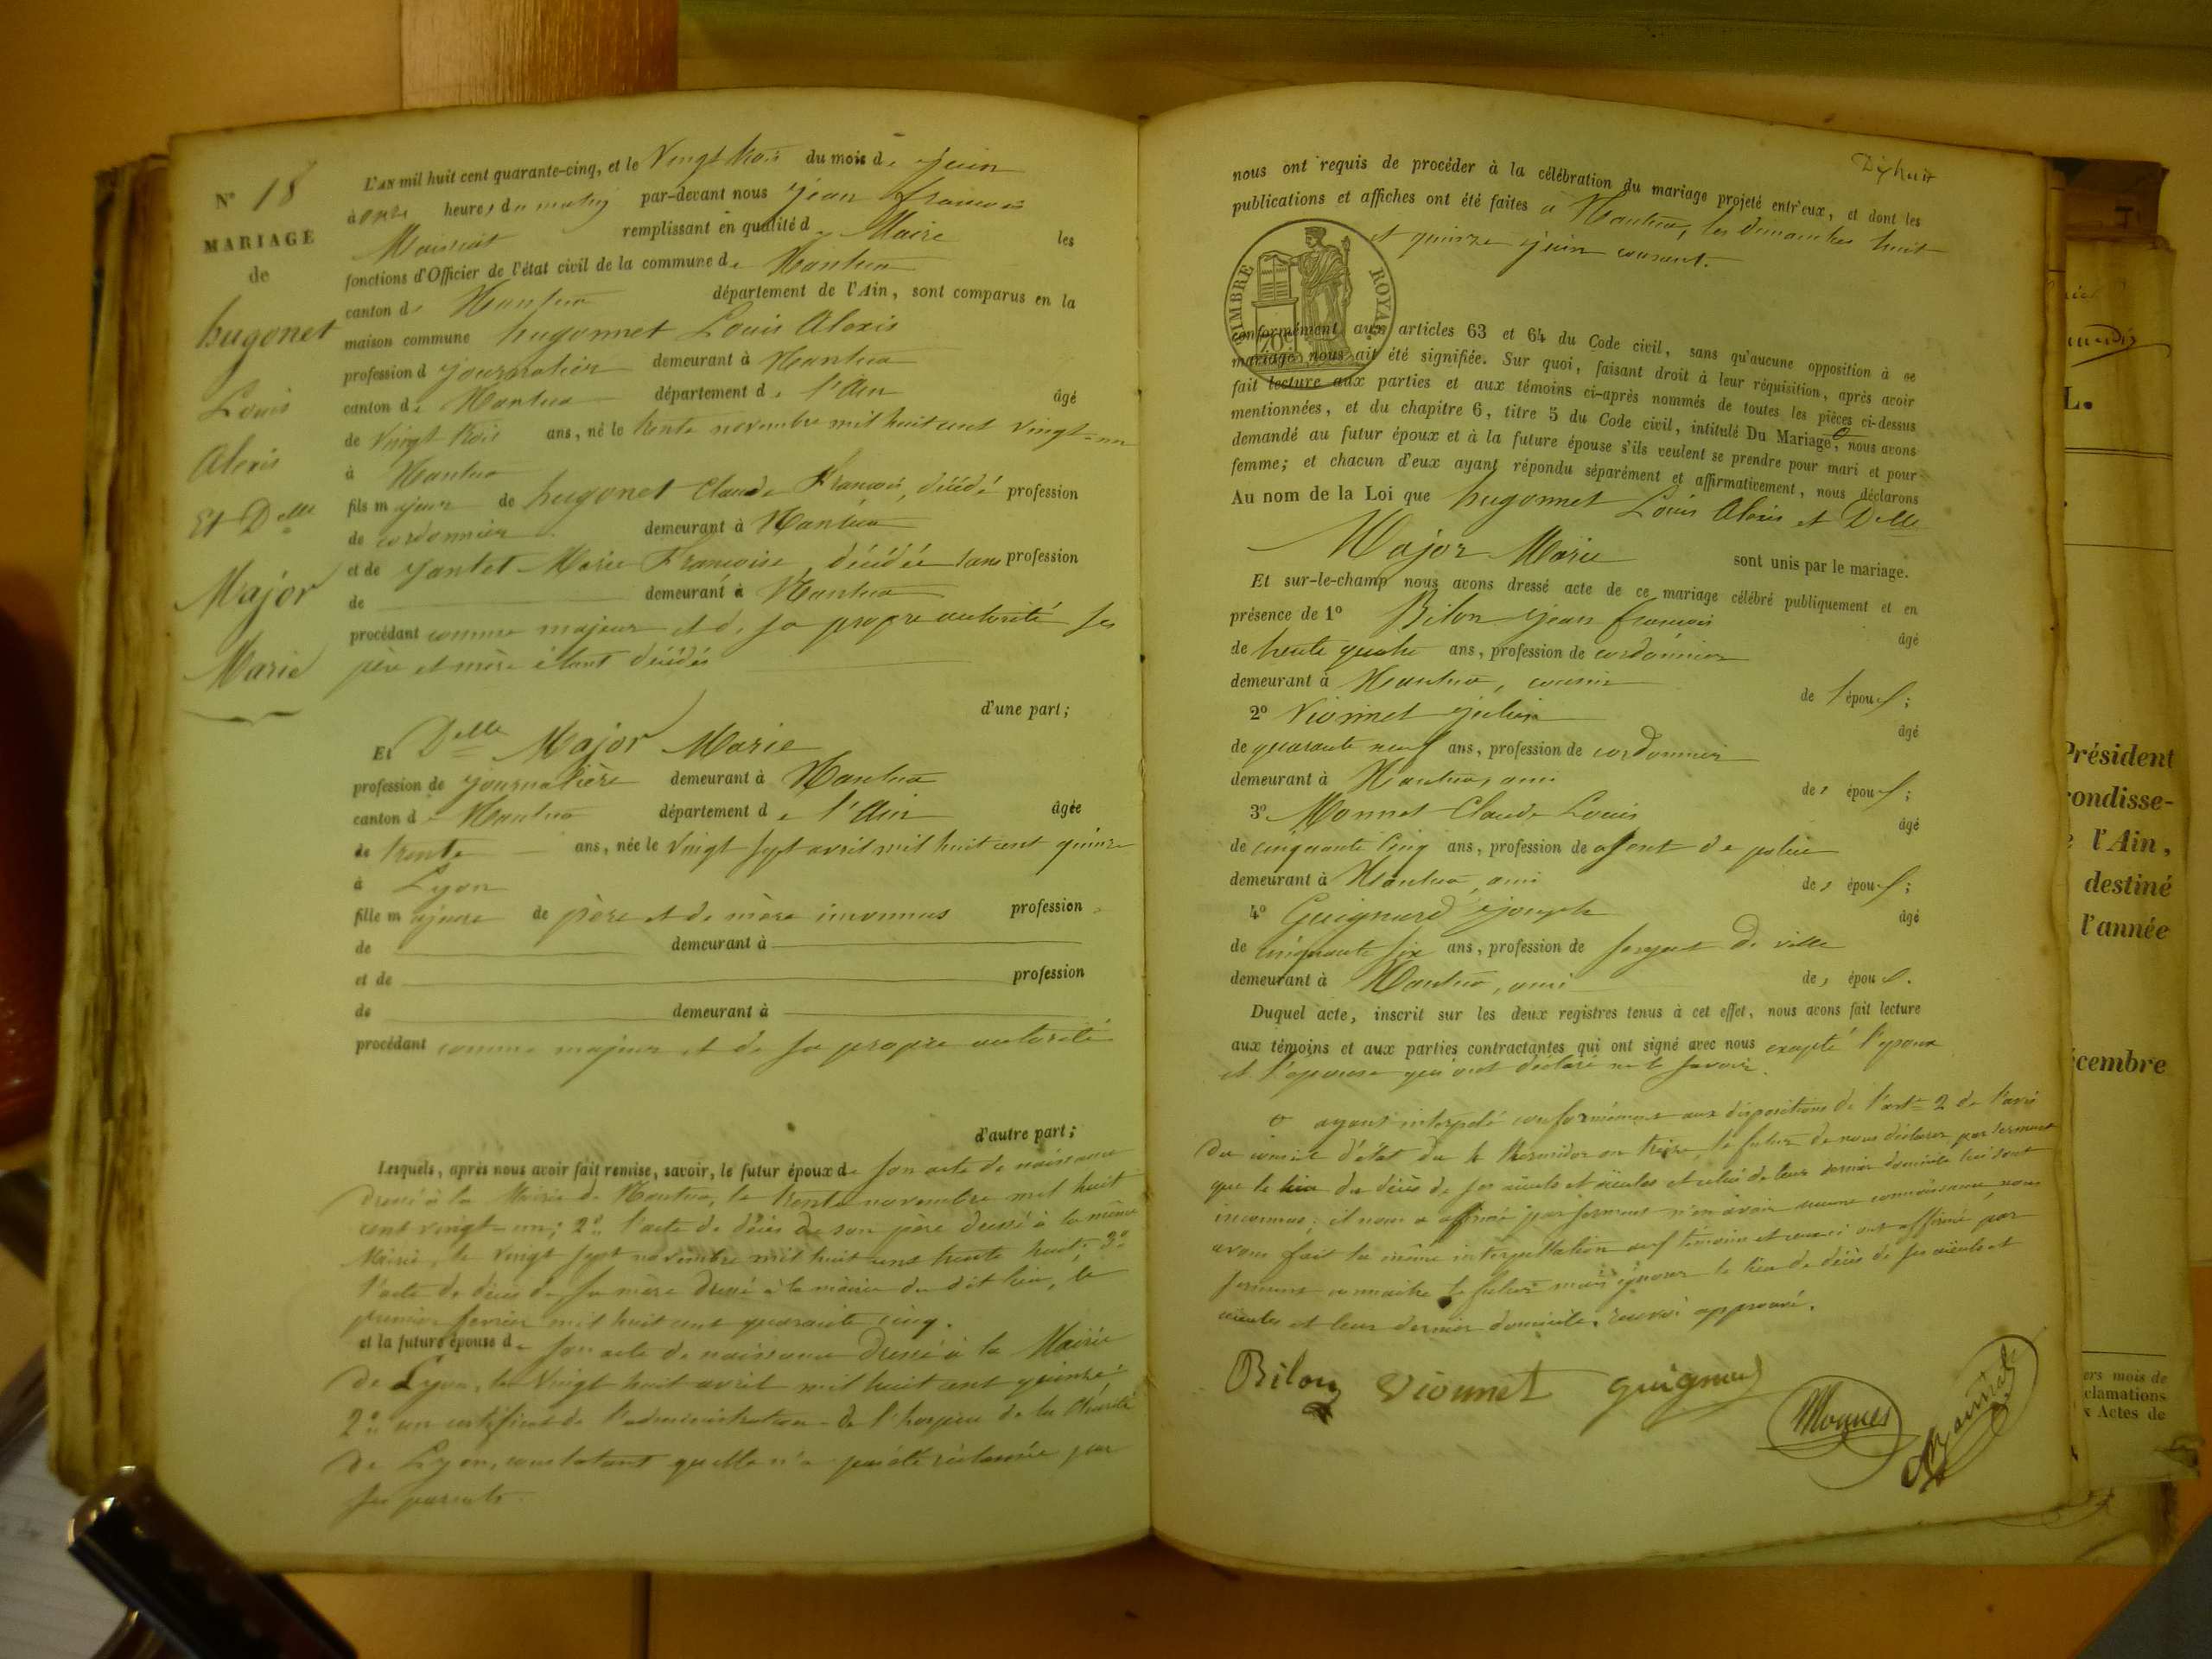 N° 18
MARIAGE
de
hugonet
Louis
Alexis
Et Delle
Major
Marie
L'AN mil huit cent quarante-cinq, et le Vingt trois du mois de juin
à onze heures du matin par-devant nous jean françois
remplissant en qualité de Maire les
fonctions d'Officier de l'état civil de la commune de Nantua
canton de Nantua département de l'Ain, sont comparus en la
maison commune hugonnet Louis Alexis
profession d journalier demeurant à Nantua
canton de Nantua département de l'Ain âgé
de vingt trois ans, né le trente novembre mil huit cent vingt-un
à Nantua
fils majeur de hugonet Claude François, décédé profession
de cordonnier demeurant à Nantua
et de jantet Marie Françoise, décédée sans profession
de demeurant à Nantua
procédant comme majeur et de sa propre autorité ses
père et mère étant décédés
d'une part;
Et Delle Major Marie
profession de journalière demeurant à Nantua
canton de Nantua département de l'Ain âgée
de trente ans, née le vingt sept avril mil huit cent quinze
à Lyon
fille majeure de père et de mère inconnus profession
de demeurant à
et de profession
de demeurant à
procédant comme majeure et de sa propre autorité
d'autre part;
Lesquels, après nous avoir fait remise, savoir, le futur époux de son acte de naissance
dressé à la Mairie de Nantua, le trente novembre mil huit
cent vingt-un; 2° l'acte de décès de son père dressé à la même
Mairie, le vingt sept novembre mil huit cent trente huit; 3°
l'acte de décès de sa mère dressé à la mairie du dit lieu, le
premier février mil huit cent quarante cinq.
et la future épouse de son acte de naissance dressé à la Mairie
de Lyon, le vingt huit avril mil huit cent quinze
2° un certificat de l'administration de l'hospice de la Charité
de Lyon, constatant quelle n'a pas été réclamée par
ses parents.
Dix huit
nous ont requis de procéder à la célébration du mariage projeté entr'eux, et dont les
publications et affiches ont été faites a Nantua, les dimanches huit
et quinze juin courant.
TIMBRE ROYAL
conformément aux articles 63 et 64 du Code civil, sans qu'aucune opposition à ce
mariage nous ait été signifiée. Sur quoi, faisant droit à leur réquisition, après avoir
fait lecture aux parties et aux témoins ci-après nommés de toutes les pièces ci-dessus
mentionnées, et du chapitre 6, titre 5 du Code civil, intitulé Du Mariage, nous avons
demandé au futur époux et à la future épouse s'ils veulent se prendre pour mari et pour
femme; et chacun d'eux ayant répondu séparément et affirmativement, nous déclarons
Au nom de la Loi que hugonnet Louis Alexis et Delle
Major Marie sont unis par le mariage.
Et sur-le-champ nous avons dressé acte de ce mariage célébré publiquement et en
présence de 1° Bilon jean françois âgé
de trente quatre ans, profession de cordonnier
demeurant à Nantua, cousin de l'époux;
2° Vionnet julien âgé
de quarante neuf ans, profession de cordonnier
demeurant à Nantua, ami des époux;
3° Monnet Claude Louis âgé
de cinquante cinq ans, profession de agent de police
demeurant à Nantua, ami des époux;
4° Guignard joseph âgé
de cinquante six ans, profession de sergent de ville
demeurant à Nantua, ami des époux.
Duquel acte, inscrit sur les deux registres tenus à cet effet, nous avons fait lecture
aux témoins et aux parties contractantes qui ont signé avec nous excepté l'époux
et l'épouse qui ont déclaré ne le savoir.
ayant interpelé conformément aux dispositions de l'art 2 de l'avis
du conseil d'état du 4 thermidor an treize, le futur de nous déclarer par serment
que le lieu du décès de ses aïeuls et aïeules et celui de leur dernier domicile lui sont
inconnus; il nous a affirmé par serment n'en avoir aucune connaissance, nous
avons fait la même interpellation aux témoins et ceux-ci ont affirmé par
serment connaître le futur mais ignorer le lieu de décès de ses aïeuls et
aïeules et leur dernier domicile. renvoi approuvé.
Bilon Vionnet Guignard
L.
Président
rondisse-
l'Ain,
destiné
l'année
écembre
ers mois de
clamations
Actes de